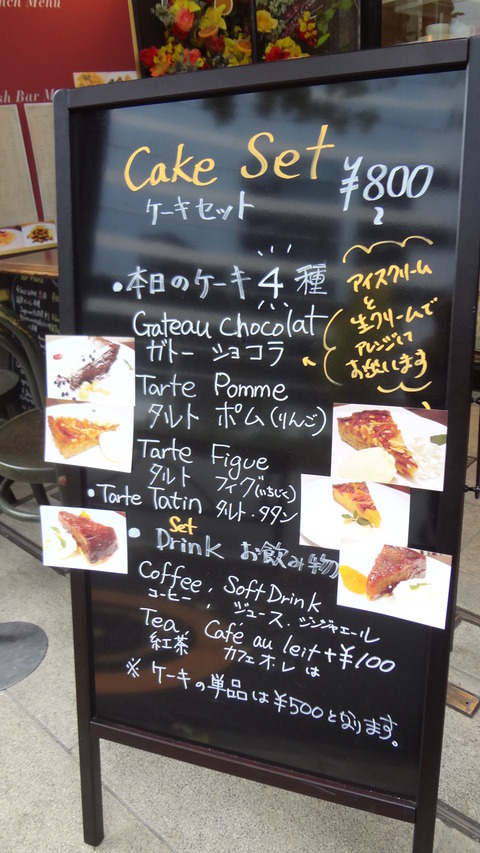 nch Menu
sh Bar M
Cake Set ¥800
ケーキセット
•本日のケーキ4種
Gateau chocolat
ガトー ショコラ
アイスクリーム
と
生クリームで
アレンジして
お出います
Tarte Pomme
タルト ポム(りんご)
Tarte Figue
タルト フィグ(いちじく)
•Tarte Tatin タルト・タタン
Set
•Drink お飲み物
Coffee, Soft Drink
コーヒー, ジュース・ジンジャエール
Tea Café au leit +¥100
紅茶 カフェオ・レ は
※ケーキの単品は¥500となります。